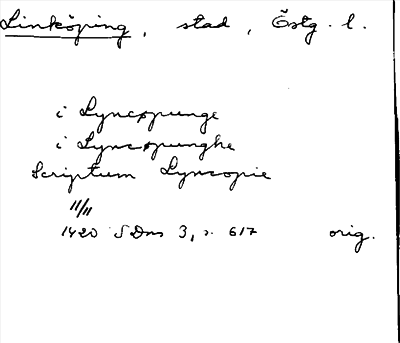 Linköping, stad, Östg. l.
i Lyncøpunge
i Lyncøpunghe
Scriptum Lyncopie
11/11
1420 SDns 3, s. 617 orig.